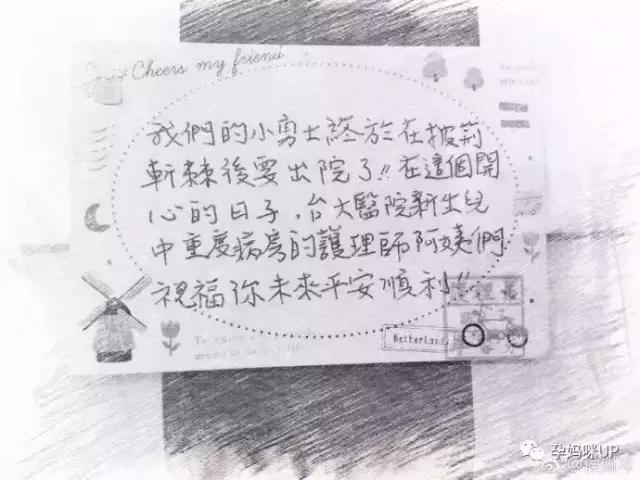 Cheers my friend
我們的小勇士終於在披荊
斬棘後要出院了!!在這個開
心的日子,台大醫院新生兒
中重度病房的護理師阿姨們
祝福你未來平安順利!!
Netherland
孕妈咪UP